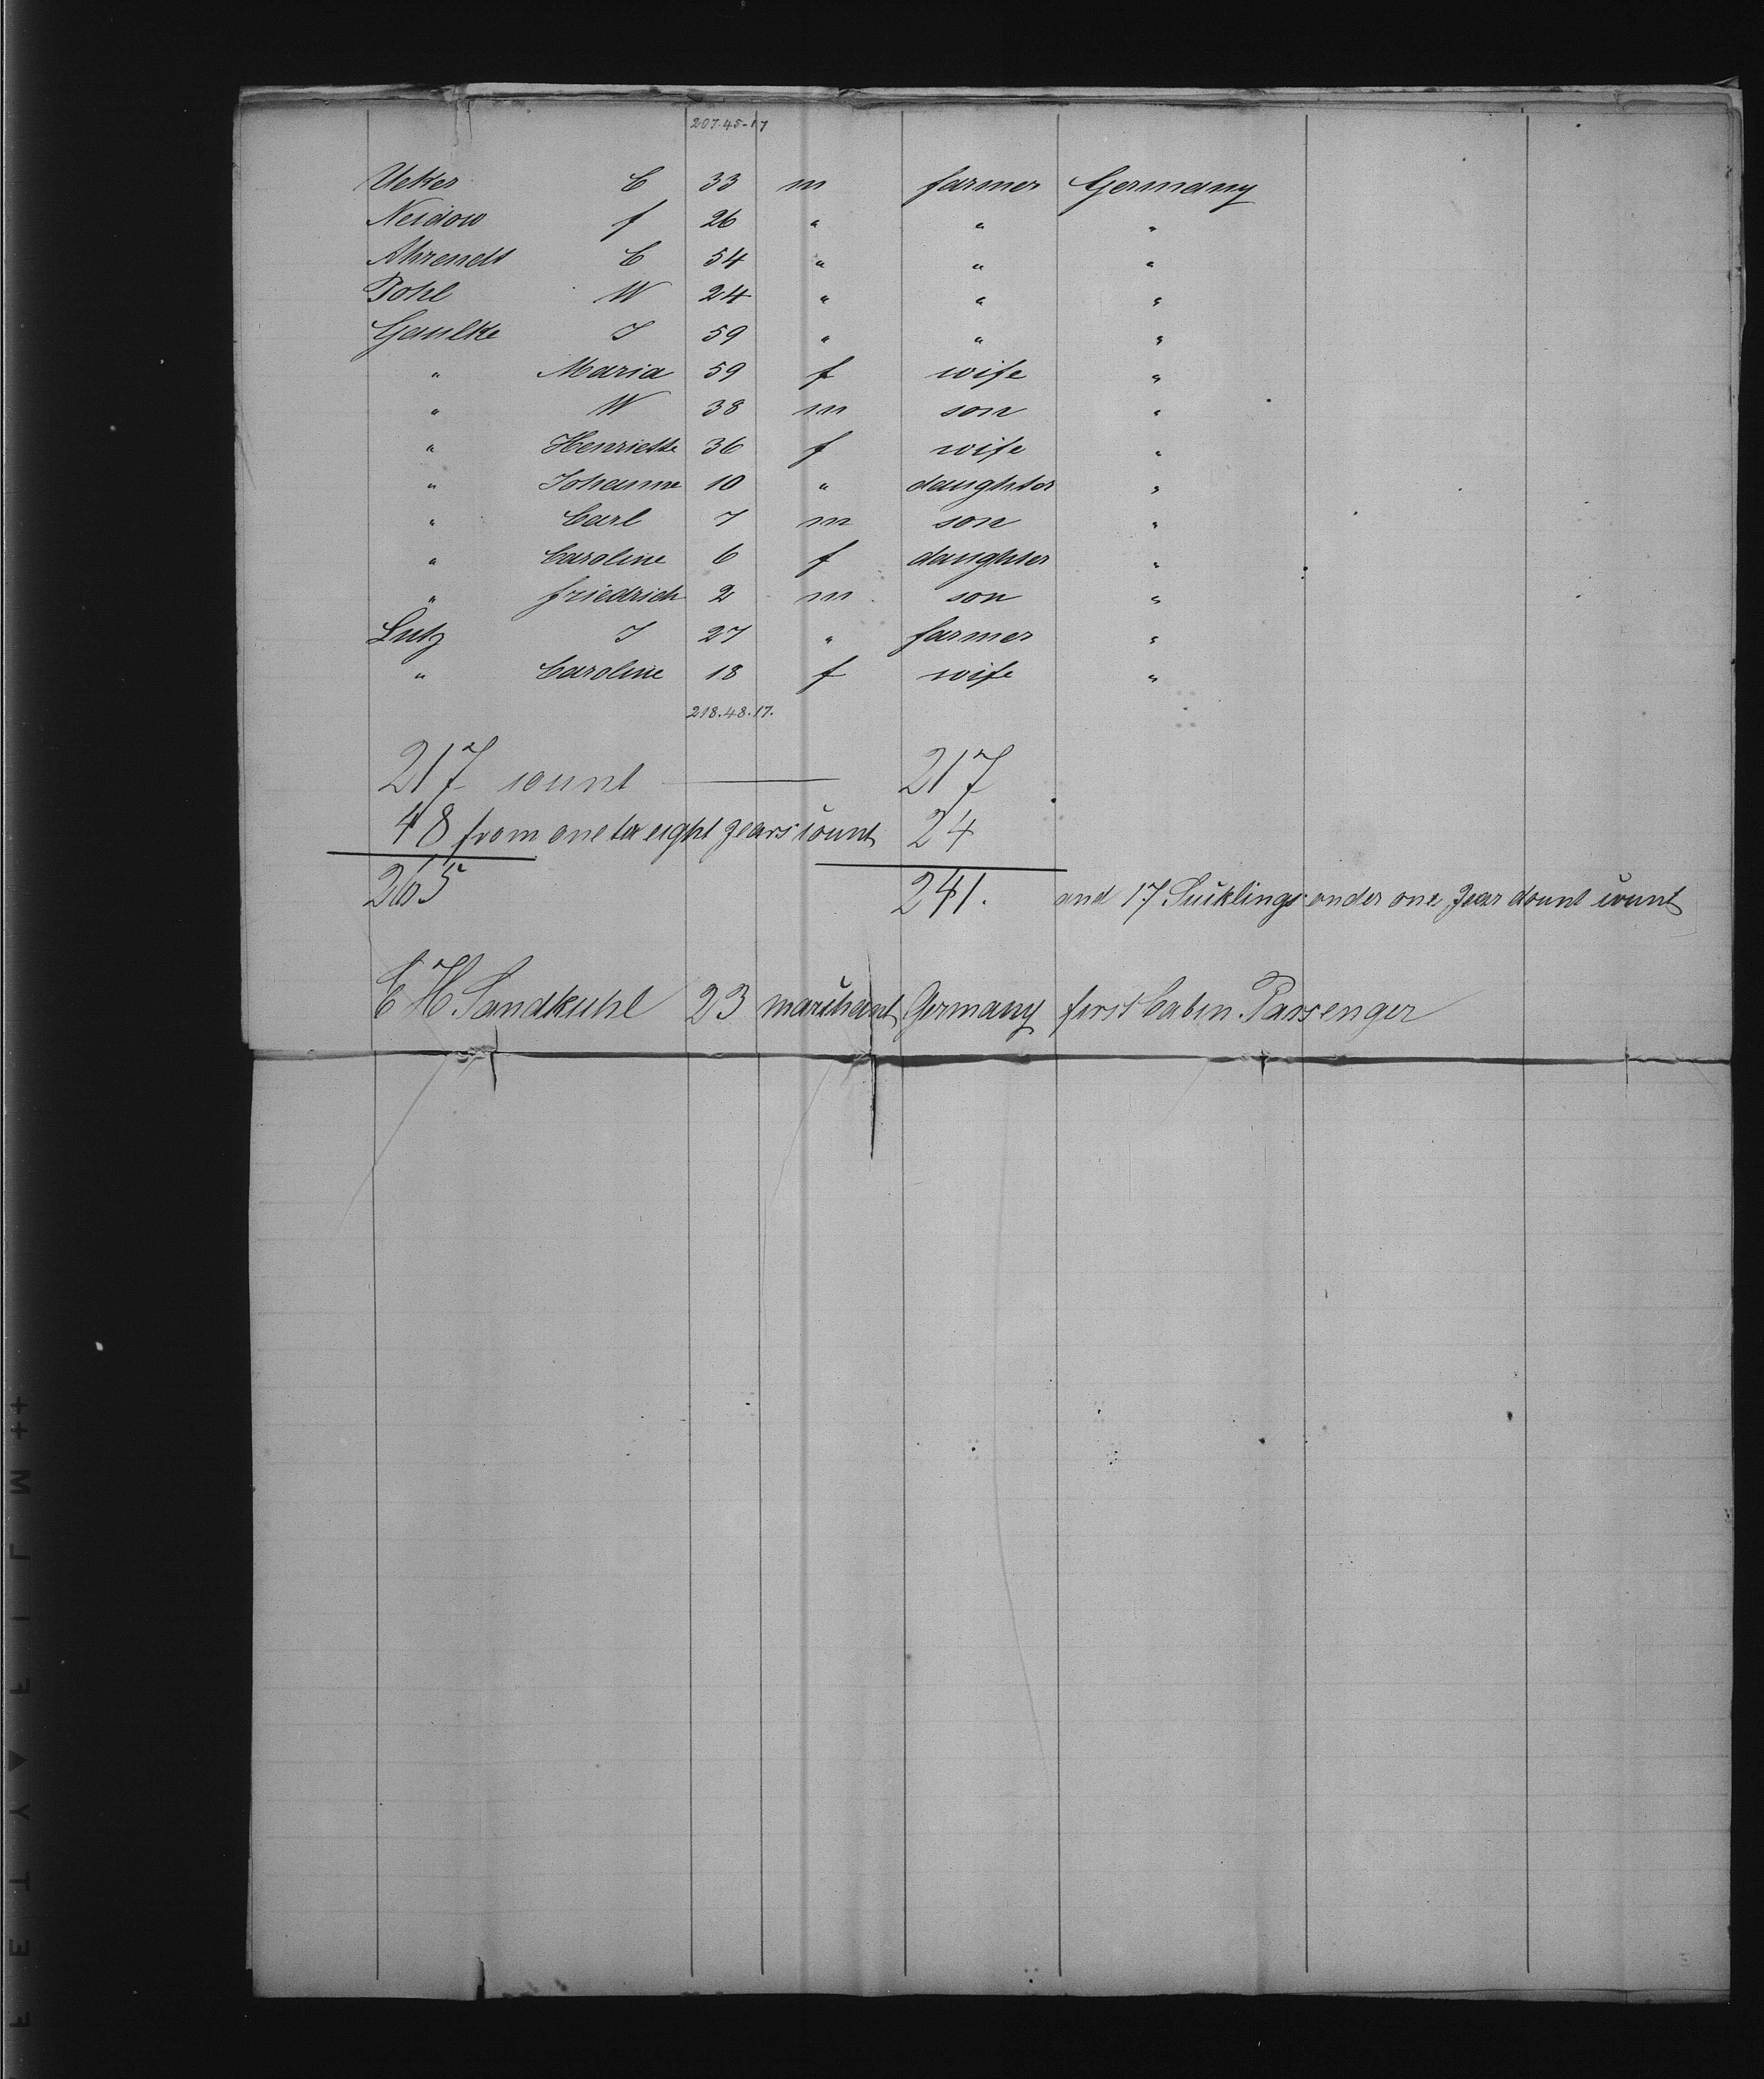 207.45-17
Ueker C 33 m farmer Germany
Neidow f 26 " " "
Ahrendt C 54 " " "
Pohl W 24 " " "
Gaulke J 59 " " "
" Maria 59 f wife "
" W 38 m son "
" Henriette 36 f wife "
" Johanne 10 " daughter "
" Carl 7 m son "
" Caroline 6 f daughter "
" friedrich 2 m son "
Lutz J 27 " farmer "
" Caroline 18 f wife "
218.48.17.
217 count — 217
48 from one to eight years count 24
265 241. and 17 Sucklings under one year dount count
C H Sandkuhl 23 marchant Germany first Cabin Passenger
SAFETY ▲ FILM ++